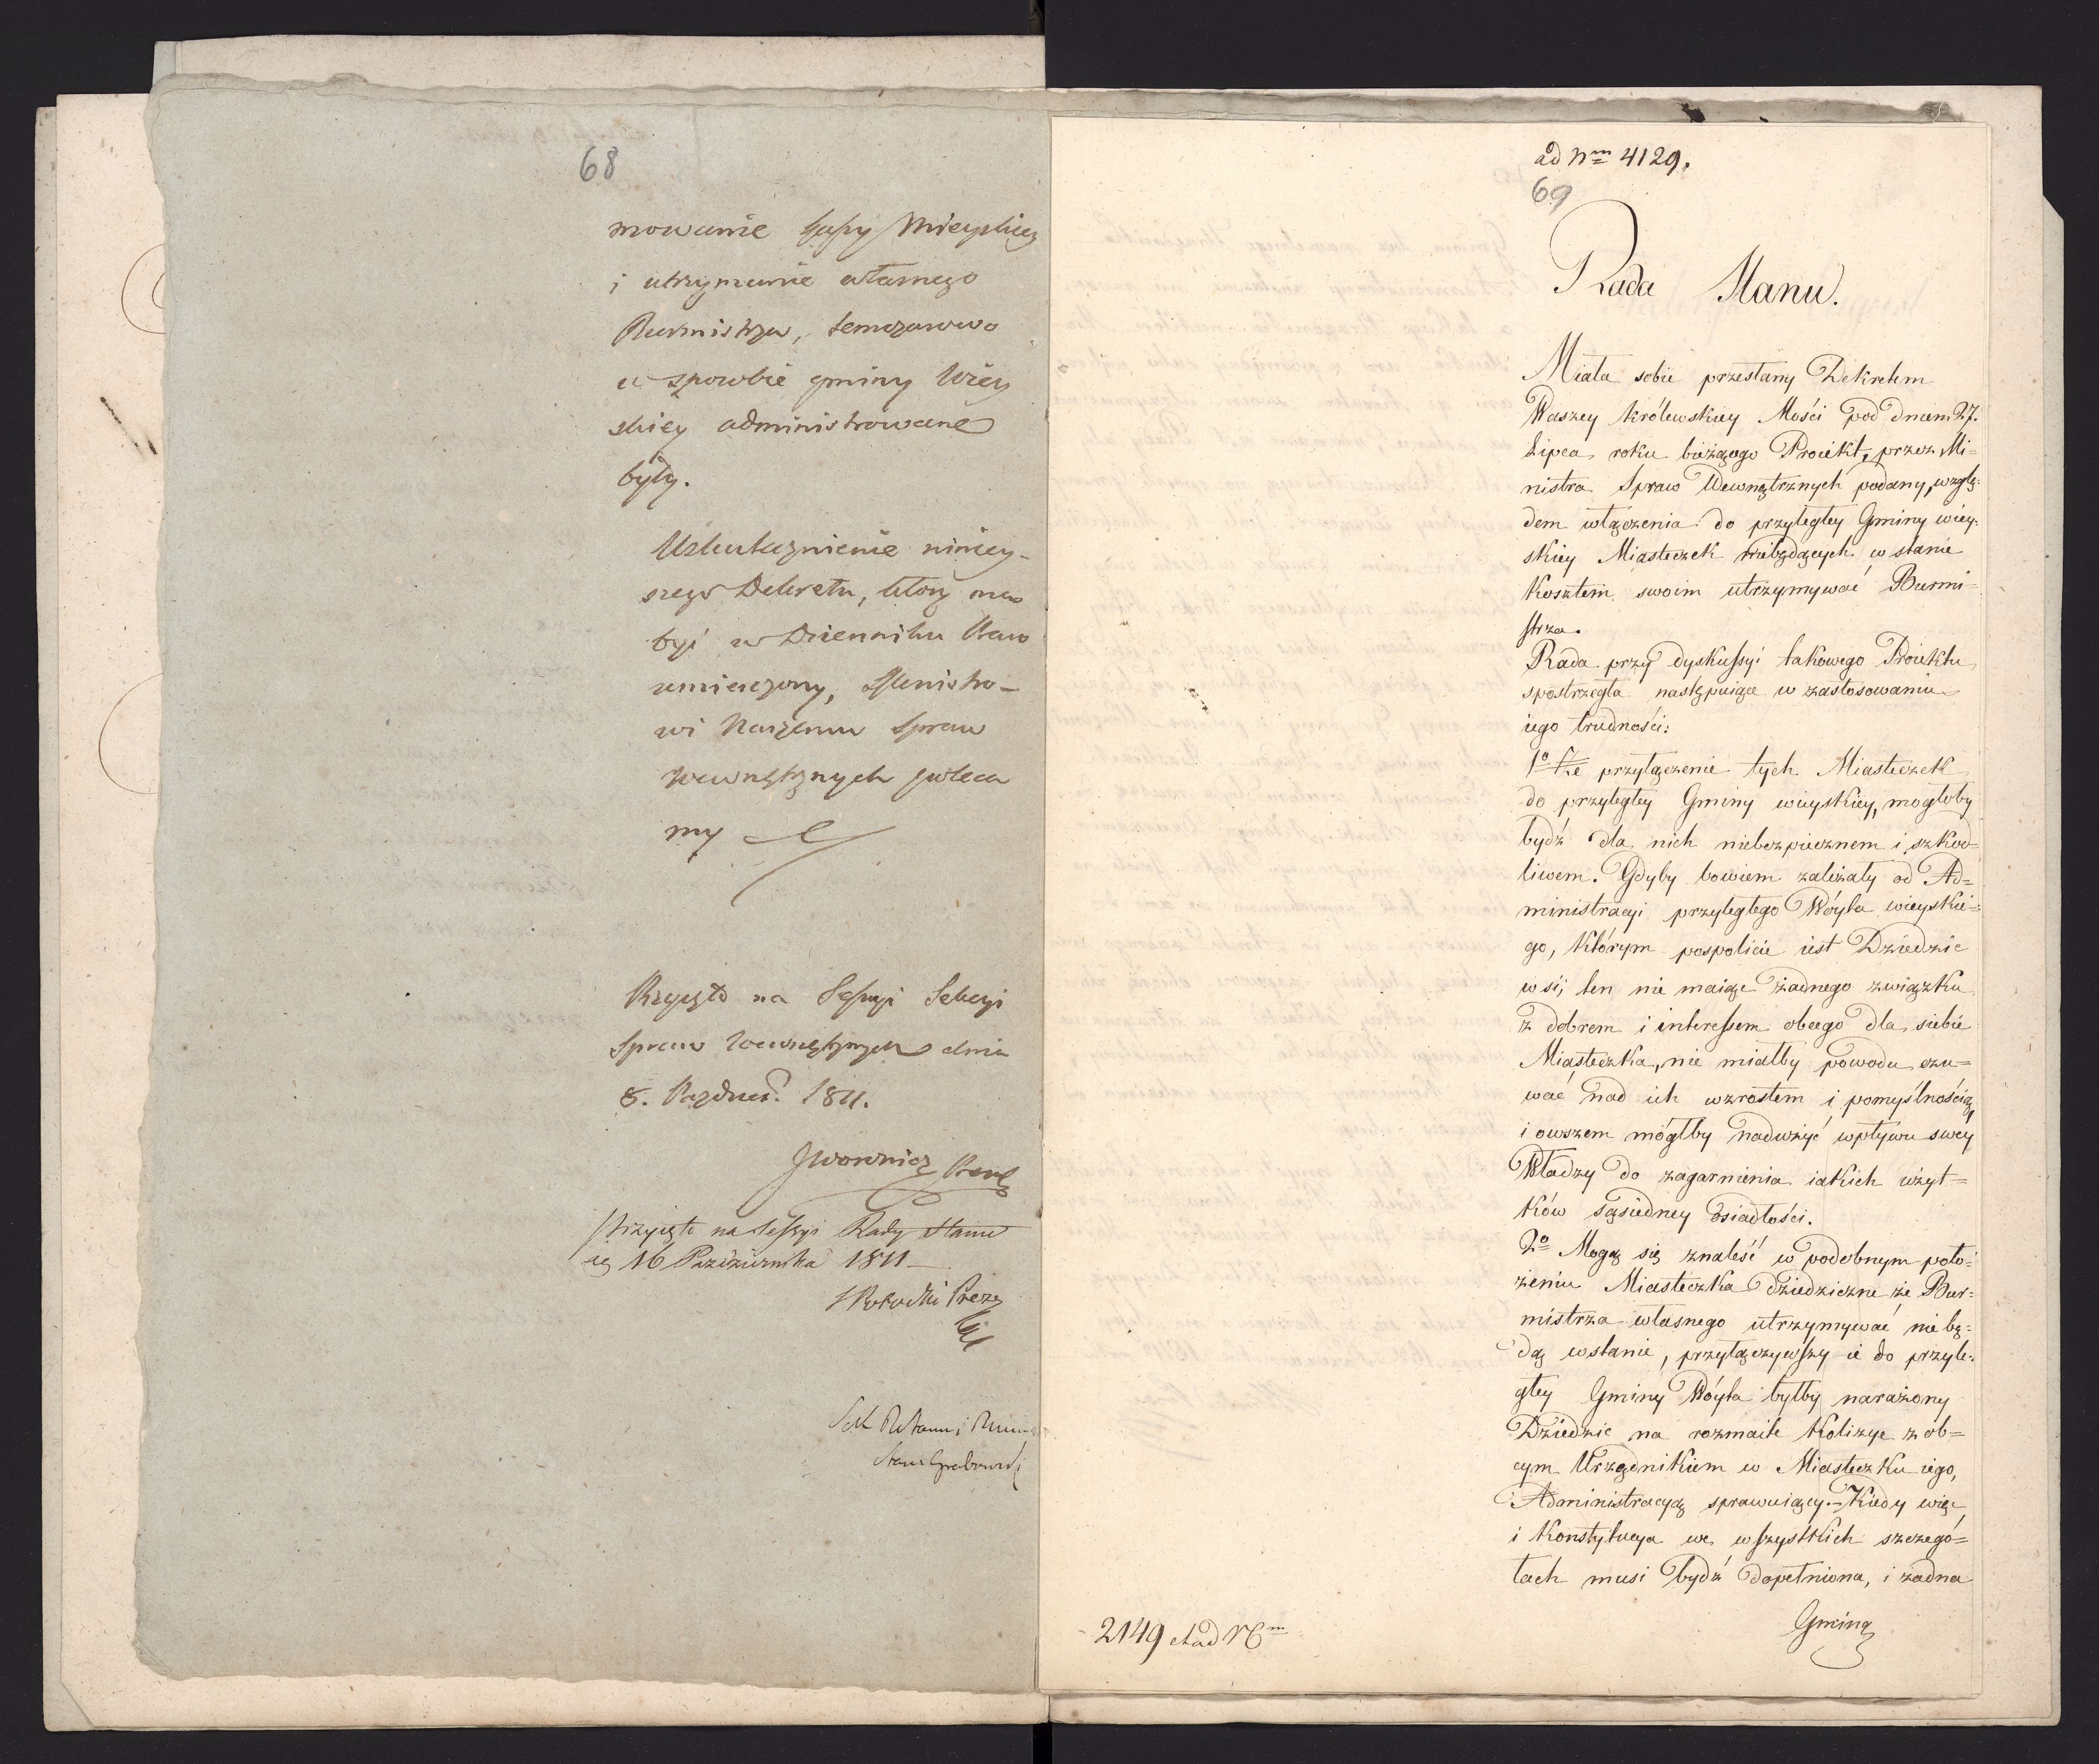 68
mowanie kassy Mieyskiey
i utrzymanie własnego
Burmistrza, temczasowo
w sposobie gminy Wiey
skiey administrowane
były.
Uskutecznienie niniey-
szego Dekretu, który ma
być w Dzienniku Praw
umieszczony, Ministro-
wi Naszemu Spraw
Wewnętrznych poleca
my
Przyięto na Sessyi Sekcyi
Spraw Wewnętrznych dnia
8. Pazdzier. 1811.
Przyięte na Sessyi Rady Stanu
16 Pazdziernika 1811
Potocki Prezes
Sek R Stanu i
Stan Grabowski
ad Nm 4129.
69
Rada Stanu.
Miała sobie przesłany Dekretem
Waszey królewskiey Mości pod dniem 27.
Lipca roku bieżącego Proiekt, przez Mi=
nistra Spraw Wewnętrznych podany, wzglę=
dem włączenia do przyległey Gminy wiey=
skiey Miasteczek niebędących w stanie
kosztem swoim utrzymywać Burmi=
strza.
Rada przy dyskussyi takowego Proiektu
spostrzegła następuiące w zastosowaniu
iego trudności:
1o Że przyłączenie tych Miasteczek
do przyległey Gminy wieyskiey, mogłoby
bydź dla nich niebezpiecznem i szkod=
liwem. Gdyby bowiem zależały od Ad=
ministracyi przyległego Wóyta wieyskie=
go, którym pospolicie iest Dziedzic
wsi, ten nie maiąc żadnego związku
z dobrem i interessem obcego dla siebie
Miasteczka, nie miałby powodu czu=
wać nad ich wzrostem i pomyślnością,
i owszem mógłby nadużyć wpływu swey
Władzy do zagarnienia iakich użyt=
ków sąsiedney osiadłości.
2o Mogą się znaleść w podobnym poło=
żeniu Miasteczka dziedziczne że Bur=
mistrza własnego utrzymywać nie bę=
dą w stanie, przyłączywszy ie do przyle=
głey Gminy Wóyta byłby narażony
Dziedzic na rozmaite kolizye z ob=
cym Urzędnikiem w Miasteczku iego,
Administracyą sprawuiący. – Kiedy więc
i Konstytucya we wszystkich szczegó=
łach musi bydź dopełniona, i żadna
Gmina
2149 et ad Nm